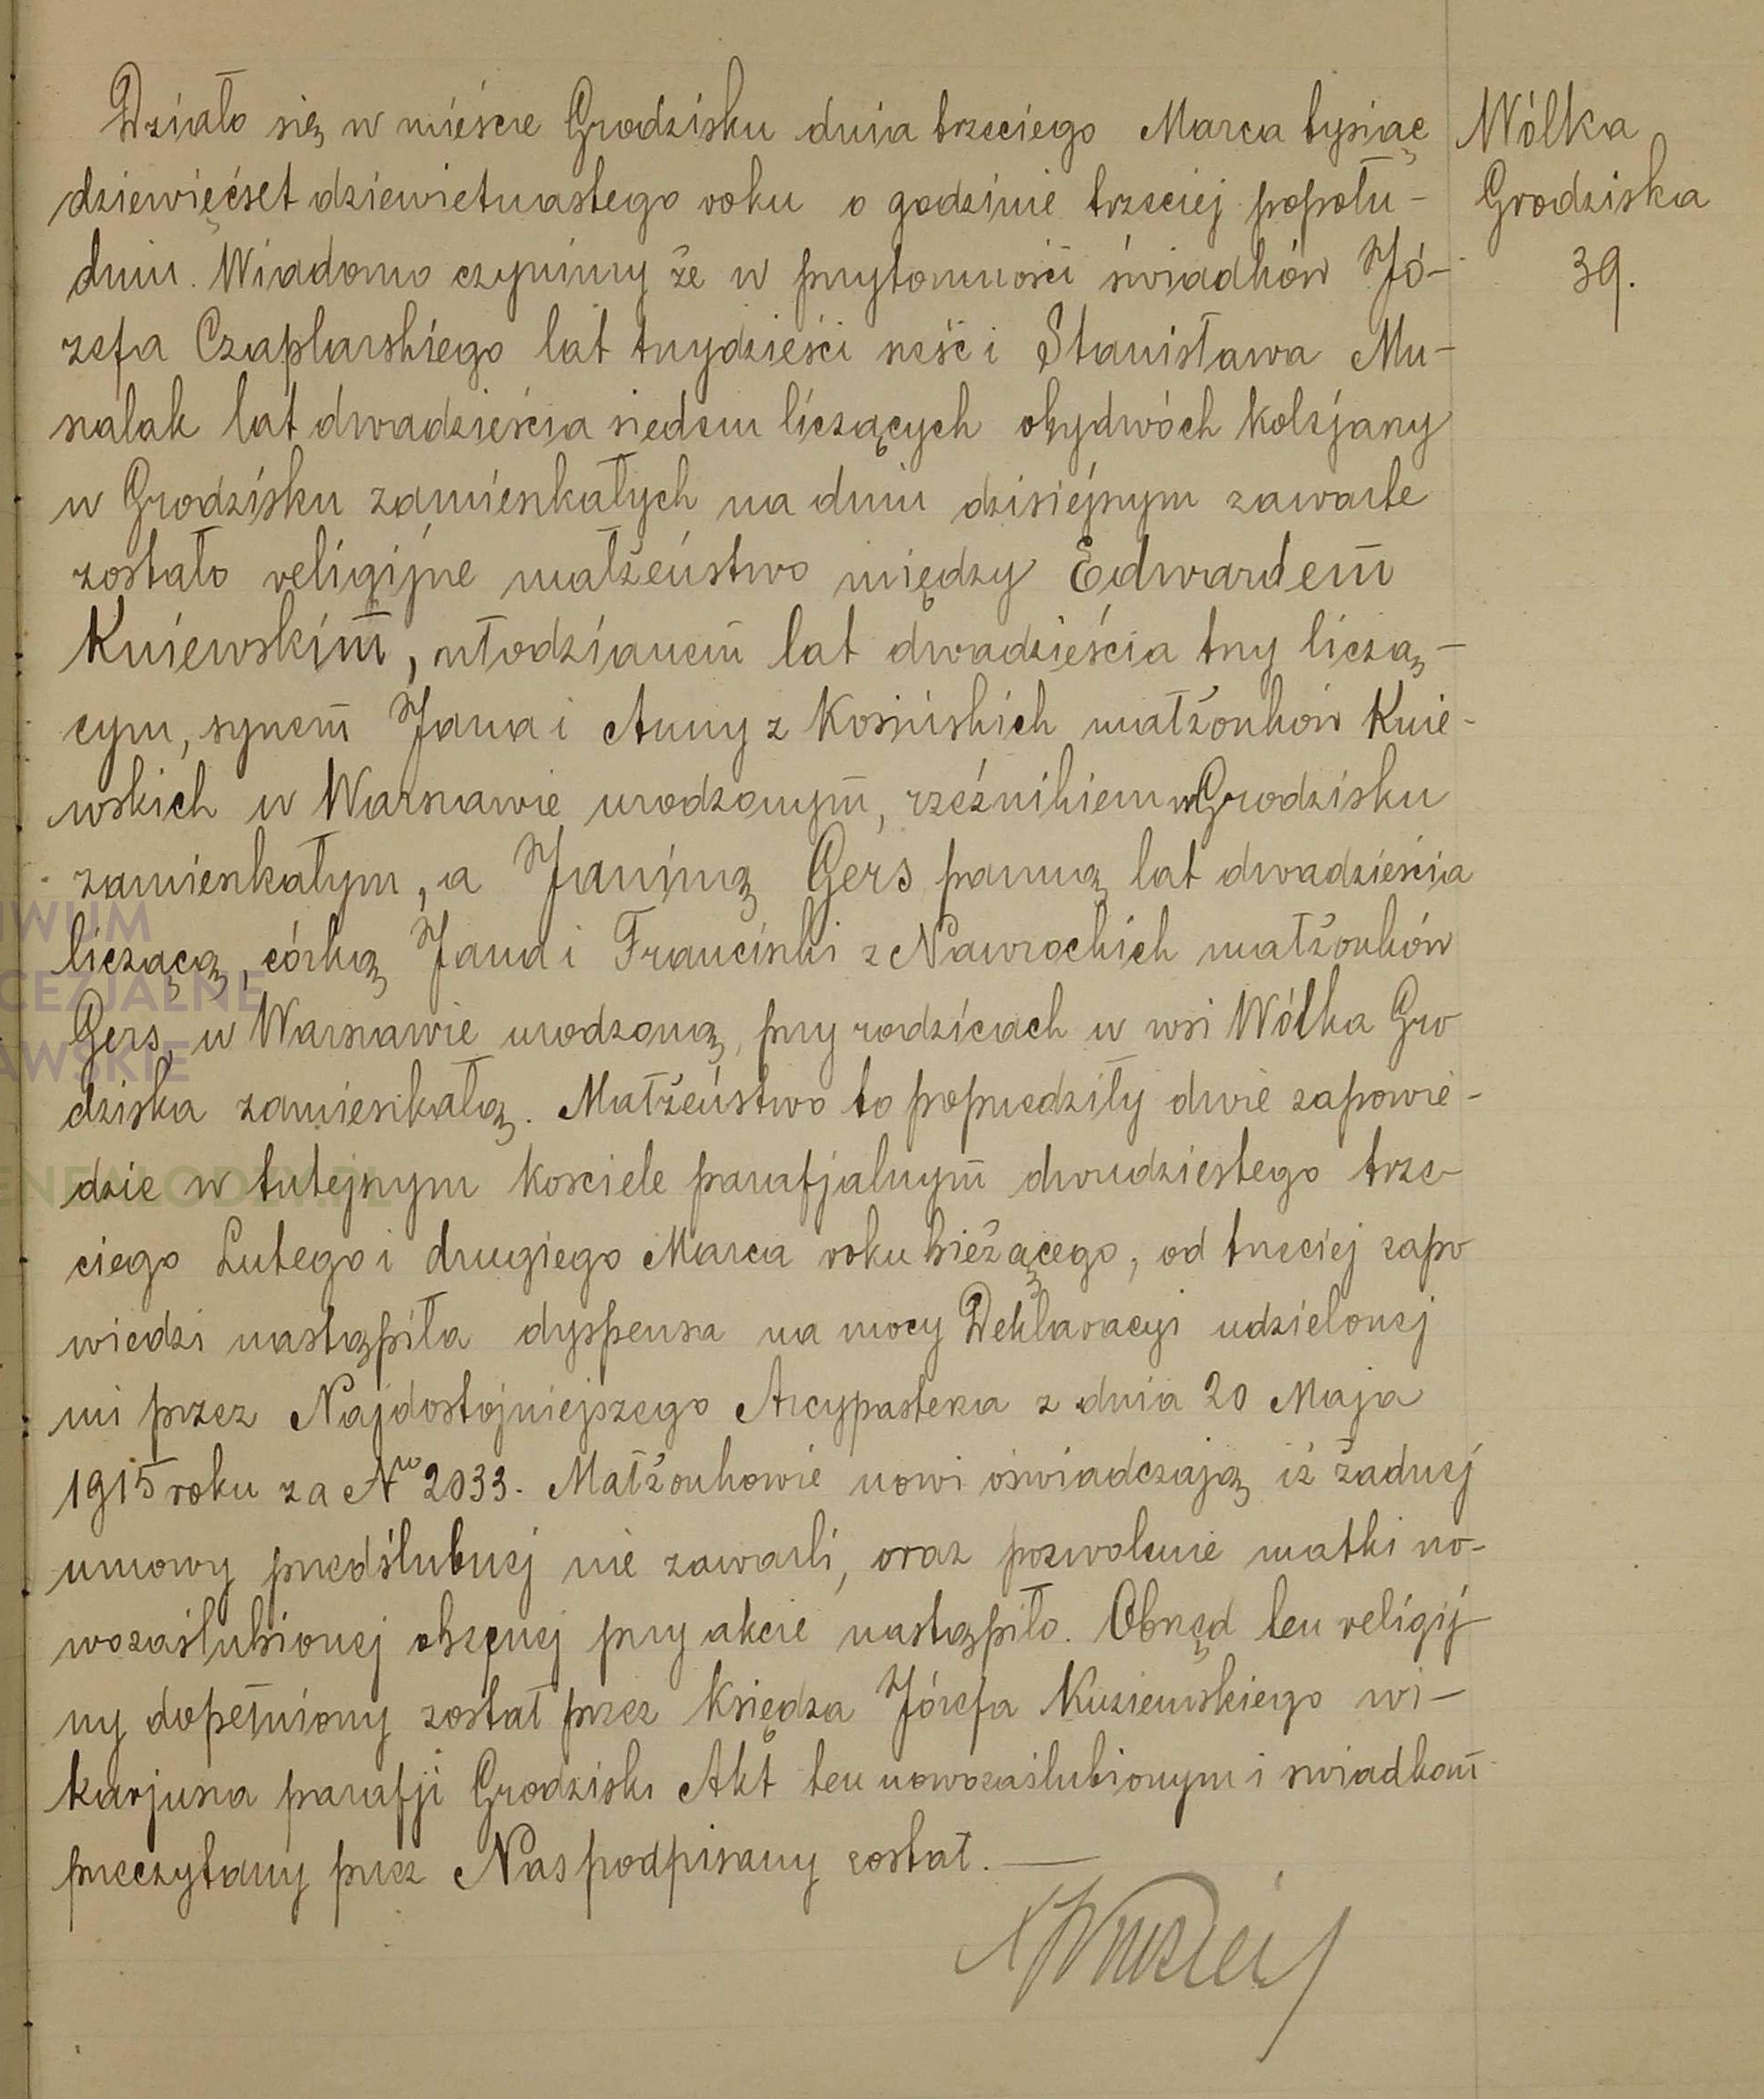 Działo się w mieście Grodzisku dnia trzeciego Marca tysiąc
dziewięćset dziewietnastego roku o godzinie trzeciej popołu-
dniu. Wiadomo czynimy że w przytomności świadków Jó-
zefa Czaplarskiego lat trzydzieści sześć i Stanisława Mu-
szalak lat dwadzieścia siedem liczących obydwóch kolejarzy
w Grodzisku zamieszkałych na dniu dzisiejszym zawarte
zostało religijne małżeństwo między Edwardem
Kniewskim, młodzianem lat dwadzieścia trzy liczą-
cym, synem Jana i Anny z Kosińskich małżonków Knie-
wskich w Warszawie urodzonym, rzeźnikiem w Grodzisku
zamieszkałym, a Janiną Gers panną lat dwadzieścia
liczącą, córką Jana i Franciszki z Nawrockich małżonków
Gers, w Warszawie urodzoną, przy rodzicach w wsi Wólka Gro
dziska zamieszkałą. Małżeństwo to poprzedziły dwie zapowie-
dzie w tutejszym kosciele parafjalnym dwudziestego trze-
ciego Lutego i drugiego Marca roku bieżącego, od trzeciej zapo
wiedzi nastąpiła dyspensa na mocy Deklaracyi udzielonej
mi przez Najdostojniejszego Arcypasterza z dnia 20 Maja
1915 roku za Nro 2033. Małżonkowie nowi oświadczają iż żadnej
umowy przedślubnej nie zawarli, oraz pozwolenie matki no-
wozaślubionej obecnej przy akcie nastąpiło. Obrzęd ten religij
ny dopełniony został przez Księdza Józefa Kuziewskiego wi-
karjusza parafji Grodzisk. Akt ten nowozaślubionym i swiadkom
przeczytany przez Nas podpisany został.
Wólka
Grodziska
39.